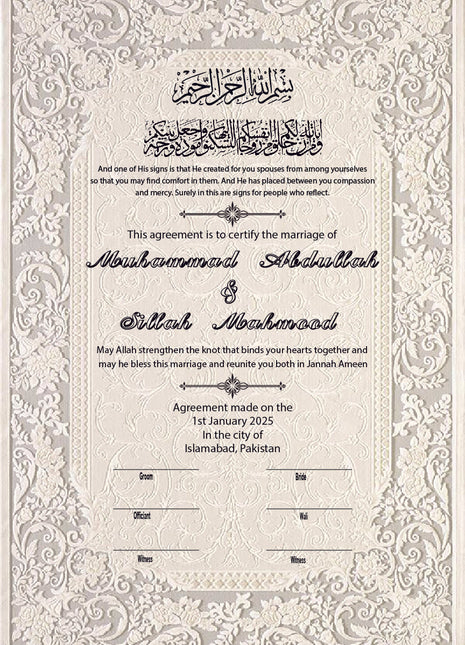 بسم الله الرحمن الرحيم
ومن آياته أن خلق لكم من أنفسكم أزواجا لتسكنوا إليها وجعل بينكم مودة ورحمة
And one of His signs is that He created for you spouses from among yourselves
so that you may find comfort in them. And He has placed between you compassion
and mercy. Surely in this are signs for people who reflect.
This agreement is to certify the marriage of
Muhammad Abdullah
&
Sillah Mahmood
May Allah strengthen the knot that binds your hearts together and
may he bless this marriage and reunite you both in Jannah Ameen
Agreement made on the
1st January 2025
In the city of
Islamabad, Pakistan
Groom
Bride
Officiant
Wali
Witness
Witness